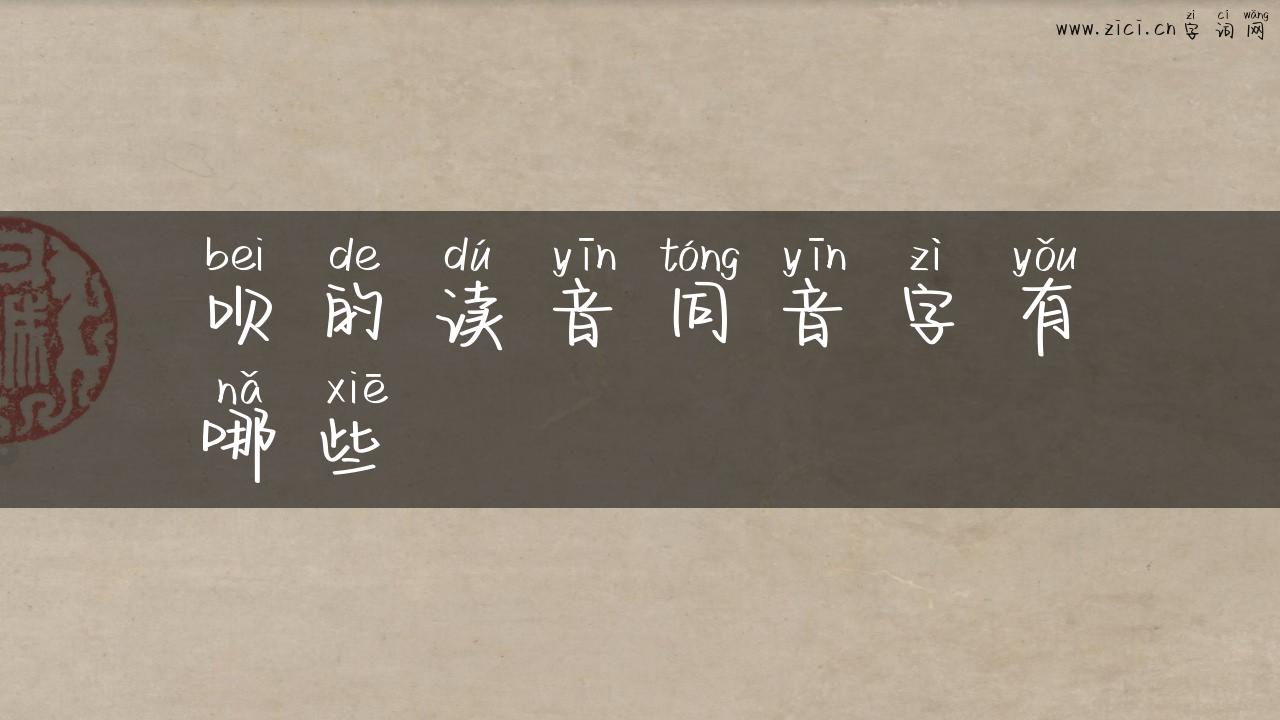 zì cí wǎng
www.zici.cn 字词网
bei de dú yīn tóng yīn zì yǒu
呗的读音同音字有
nǎ xiē
哪些